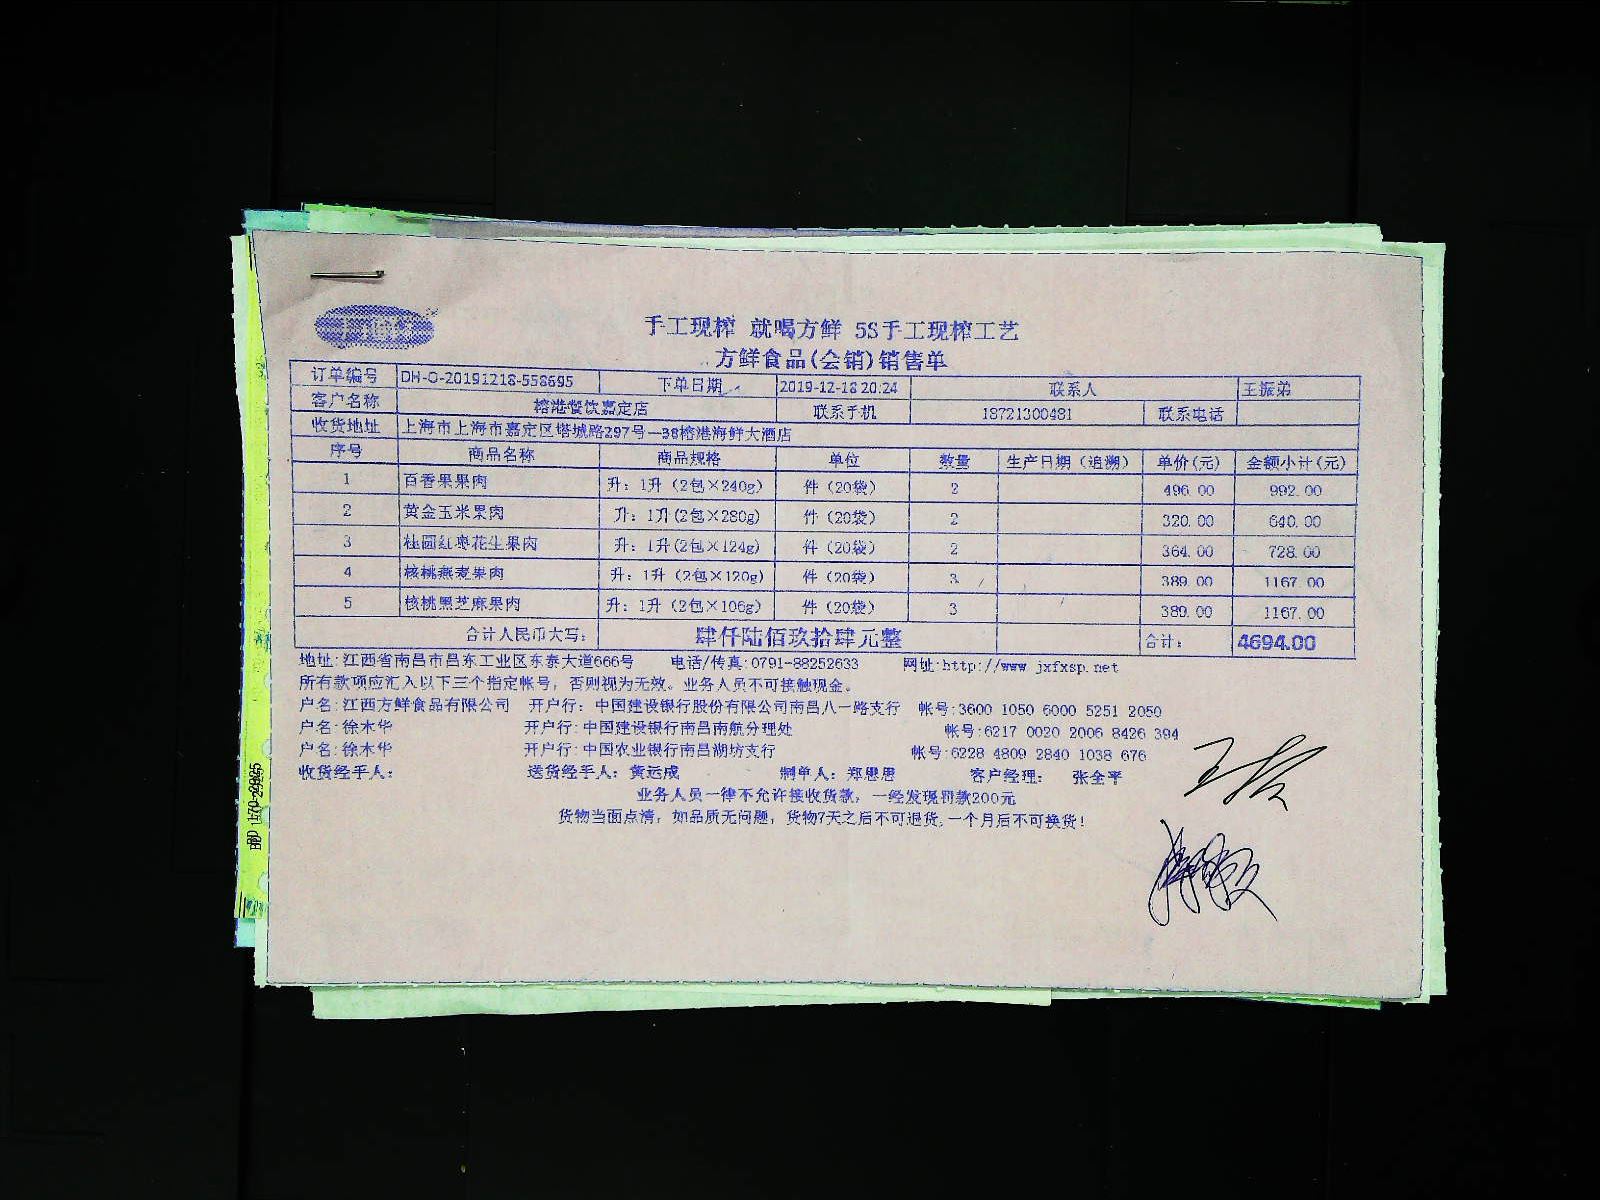 手工现榨 就喝方鲜 5S手工现榨工艺
方鲜食品(会销)销售单
订单编号 DH-O-20191218-558695 下单日期 2019-12-18 20:24 联系人 王振弟
客户名称 榕港餐饮嘉定店 联系手机 18721300481 联系电话
收货地址 上海市上海市嘉定区塔城路297号—38榕港海鲜大酒店
序号 商品名称 商品规格 单位 数量 生产日期（追溯） 单价(元) 金额小计(元)
1 百香果果肉 升：1升（2包×240g） 件（20袋） 2 496.00 992.00
2 黄金玉米果肉 升：1升(2包×280g) 件（20袋） 2 320.00 640.00
3 桂圆红枣花生果肉 升：1升(2包×124g) 件（20袋） 2 364.00 728.00
4 核桃燕麦果肉 升：1升（2包×120g） 件（20袋） 3 389.00 1167.00
5 核桃黑芝麻果肉 升：1升（2包×106g） 件（20袋） 3 389.00 1167.00
合计人民币大写： 肆仟陆佰玖拾肆元整 合计： 4694.00
地址:江西省南昌市昌东工业区东泰大道666号 电话/传真:0791-88252633 网址:http://www jxfxsp.net
所有款项应汇入以下三个指定帐号，否则视为无效。业务人员不可接触现金。
户名:江西方鲜食品有限公司 开户行：中国建设银行股份有限公司南昌八一路支行 帐号:3600 1050 6000 5251 2050
户名:徐木华 开户行:中国建设银行南昌南航分理处 帐号:6217 0020 2006 8426 394
户名:徐木华 开户行:中国农业银行南昌湖坊支行 帐号:6228 4809 2840 1038 676
收货经手人： 送货经手人：黄运成 制单人：郑思思 客户经理： 张全平
业务人员一律不允许接收货款，一经发现罚款200元
货物当面点清，如品质无问题，货物7天之后不可退货,一个月后不可换货！